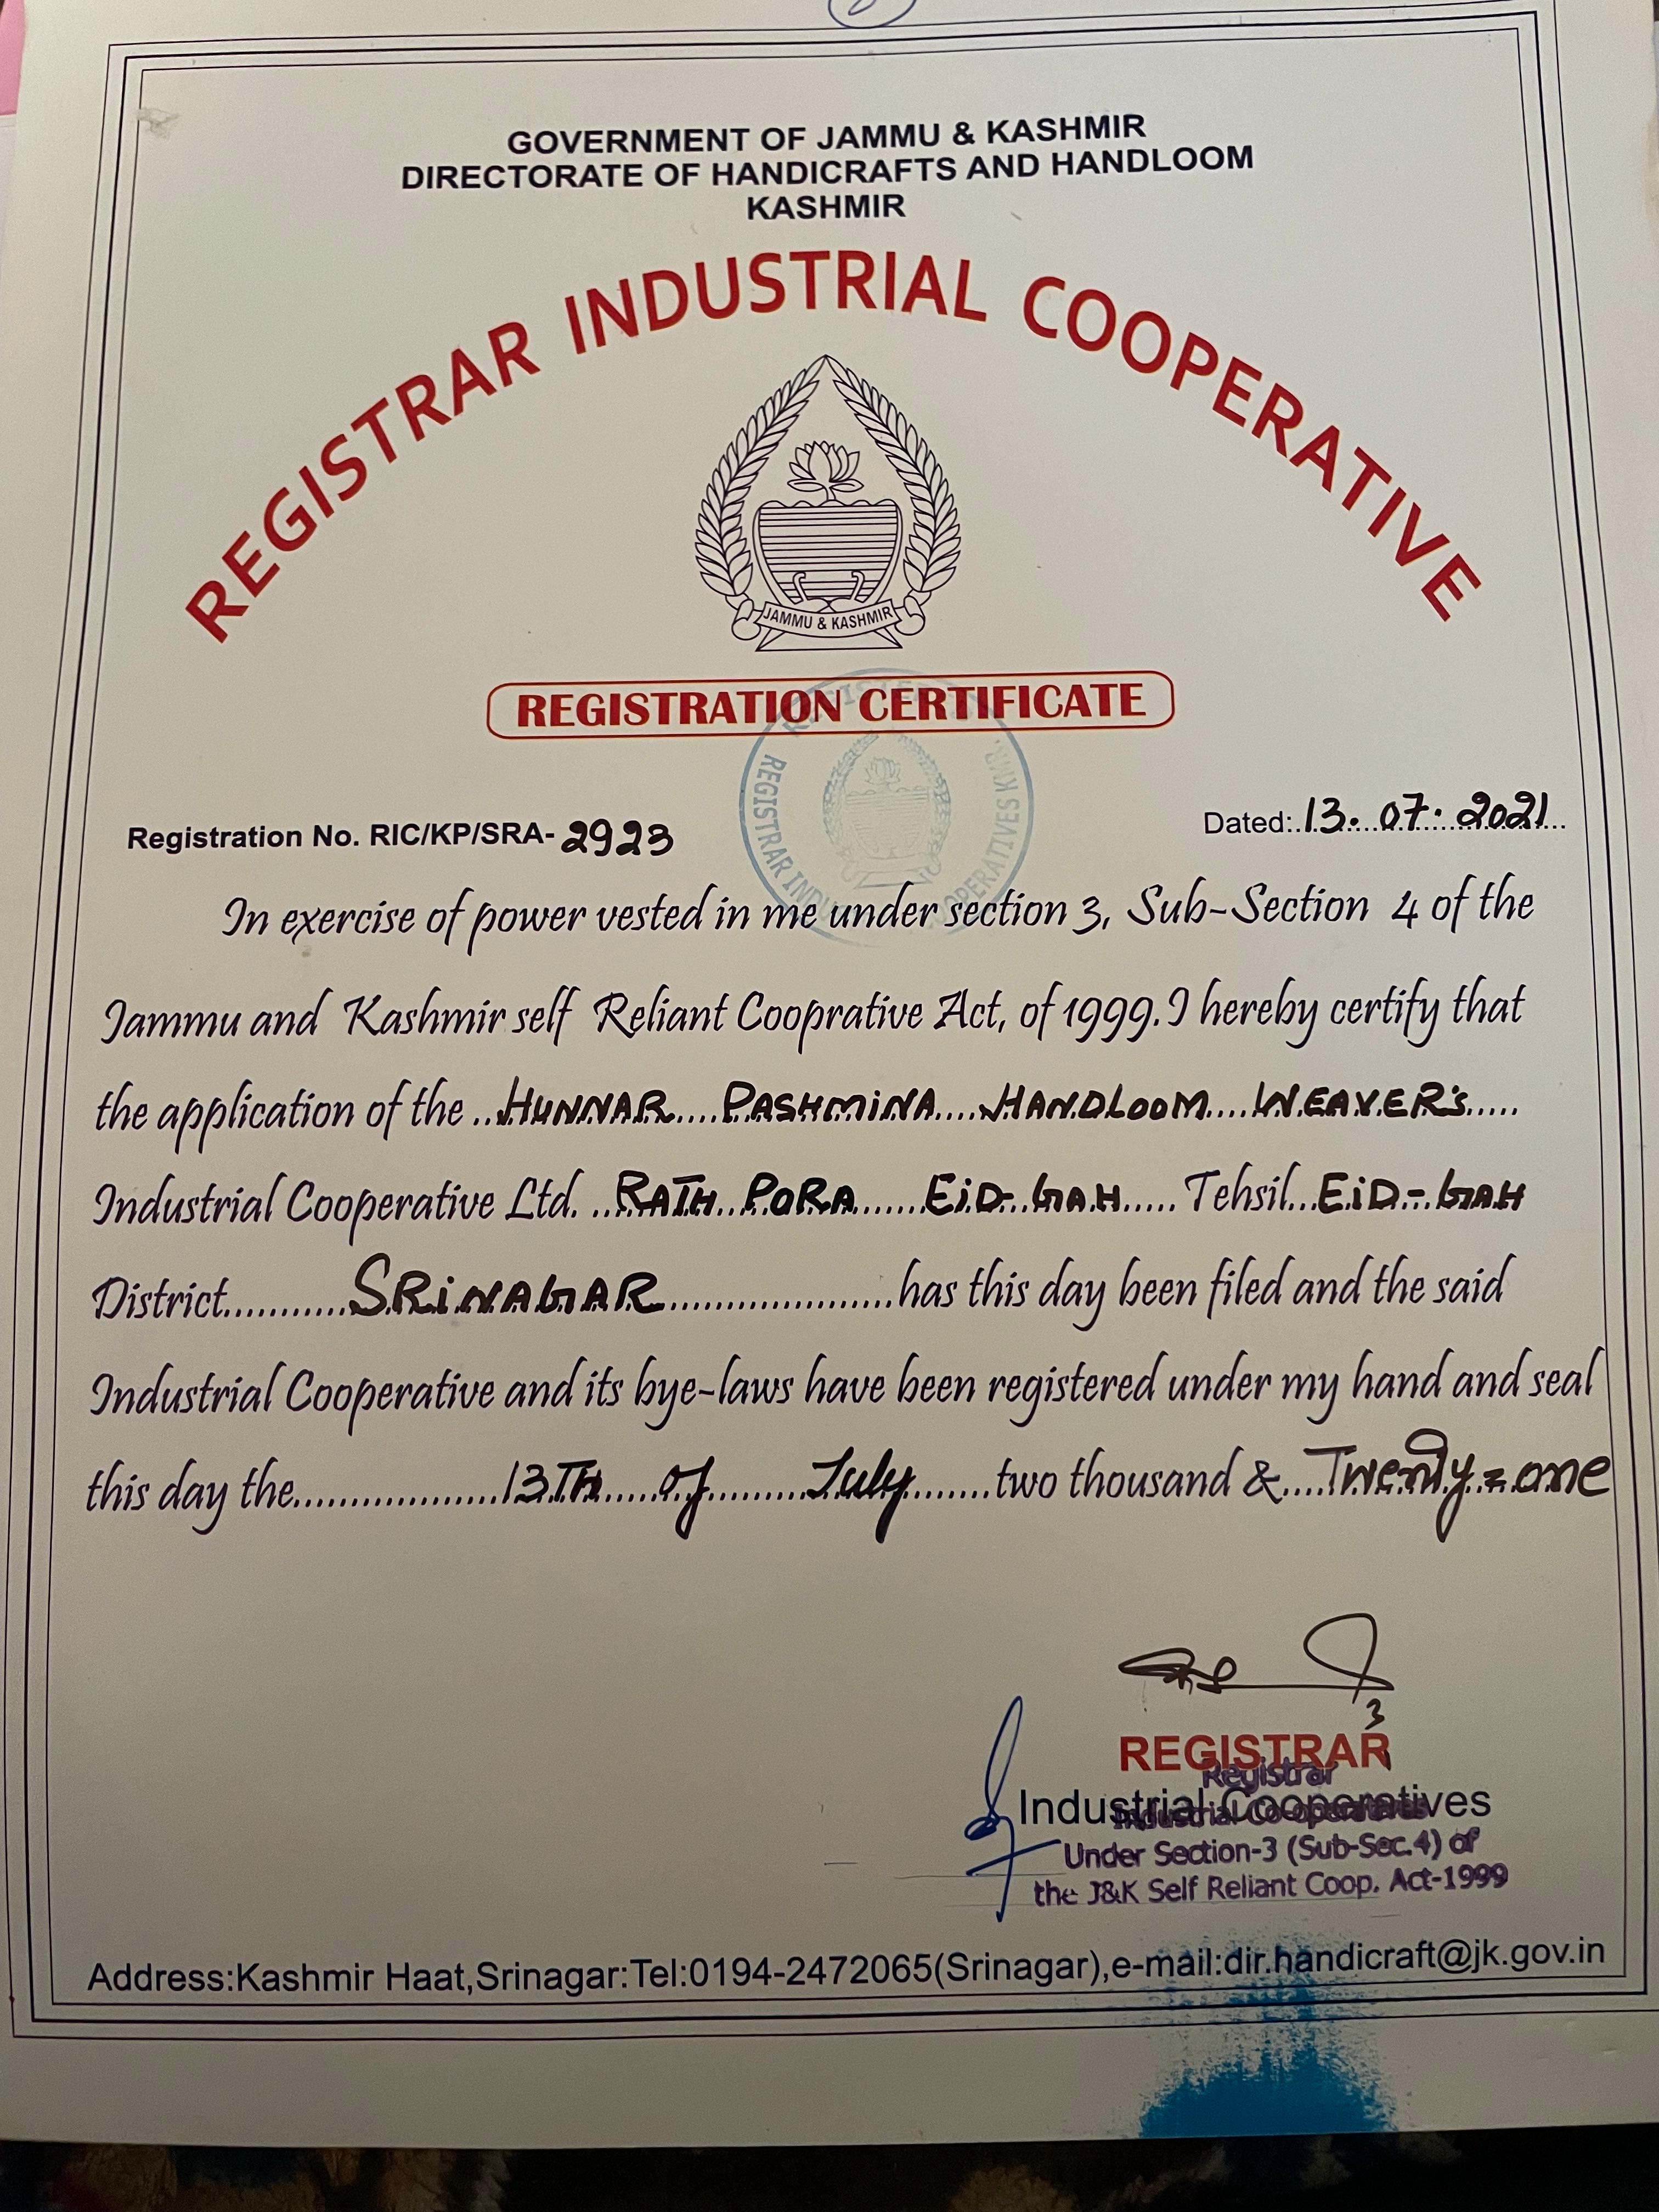 GOVERNMENT OF JAMMU & KASHMIR
DIRECTORATE OF HANDICRAFTS AND HANDLOOM
KASHMIR
REGISTRAR INDUSTRIAL COOPERATIVE
JAMMU & KASHMIR
REGISTRATION CERTIFICATE
REGISTRAR INDU OOPERATIVES KMR.
Registration No. RIC/KP/SRA- 2923
Dated:.13. 07. 2021...
In exercise of power vested in me under section 3, Sub-Section 4 of the
Jammu and Kashmir self Reliant Cooprative Act, of 1999. I hereby certify that
the application of the ..HUNNAR....PASHMiNA....HANDLOOM....WEAVER's.....
Industrial Cooperative Ltd. ..RATH PORA.......EiD-GAH..... Tehsil...EiD-GAH
District...........SRiNAGAR......................has this day been filed and the said
Industrial Cooperative and its bye-laws have been registered under my hand and seal
this day the...................13TH.....of.........July.......two thousand &....Twenty=one
3
REGISTRAR
Registrar
Industrial Cooperatives
Industrial Co-operatives
Under Section-3 (Sub-Sec.4) of
the J&K Self Reliant Coop. Act-1999
Address:Kashmir Haat,Srinagar:Tel:0194-2472065(Srinagar),e-mail:dir.handicraft@jk.gov.in